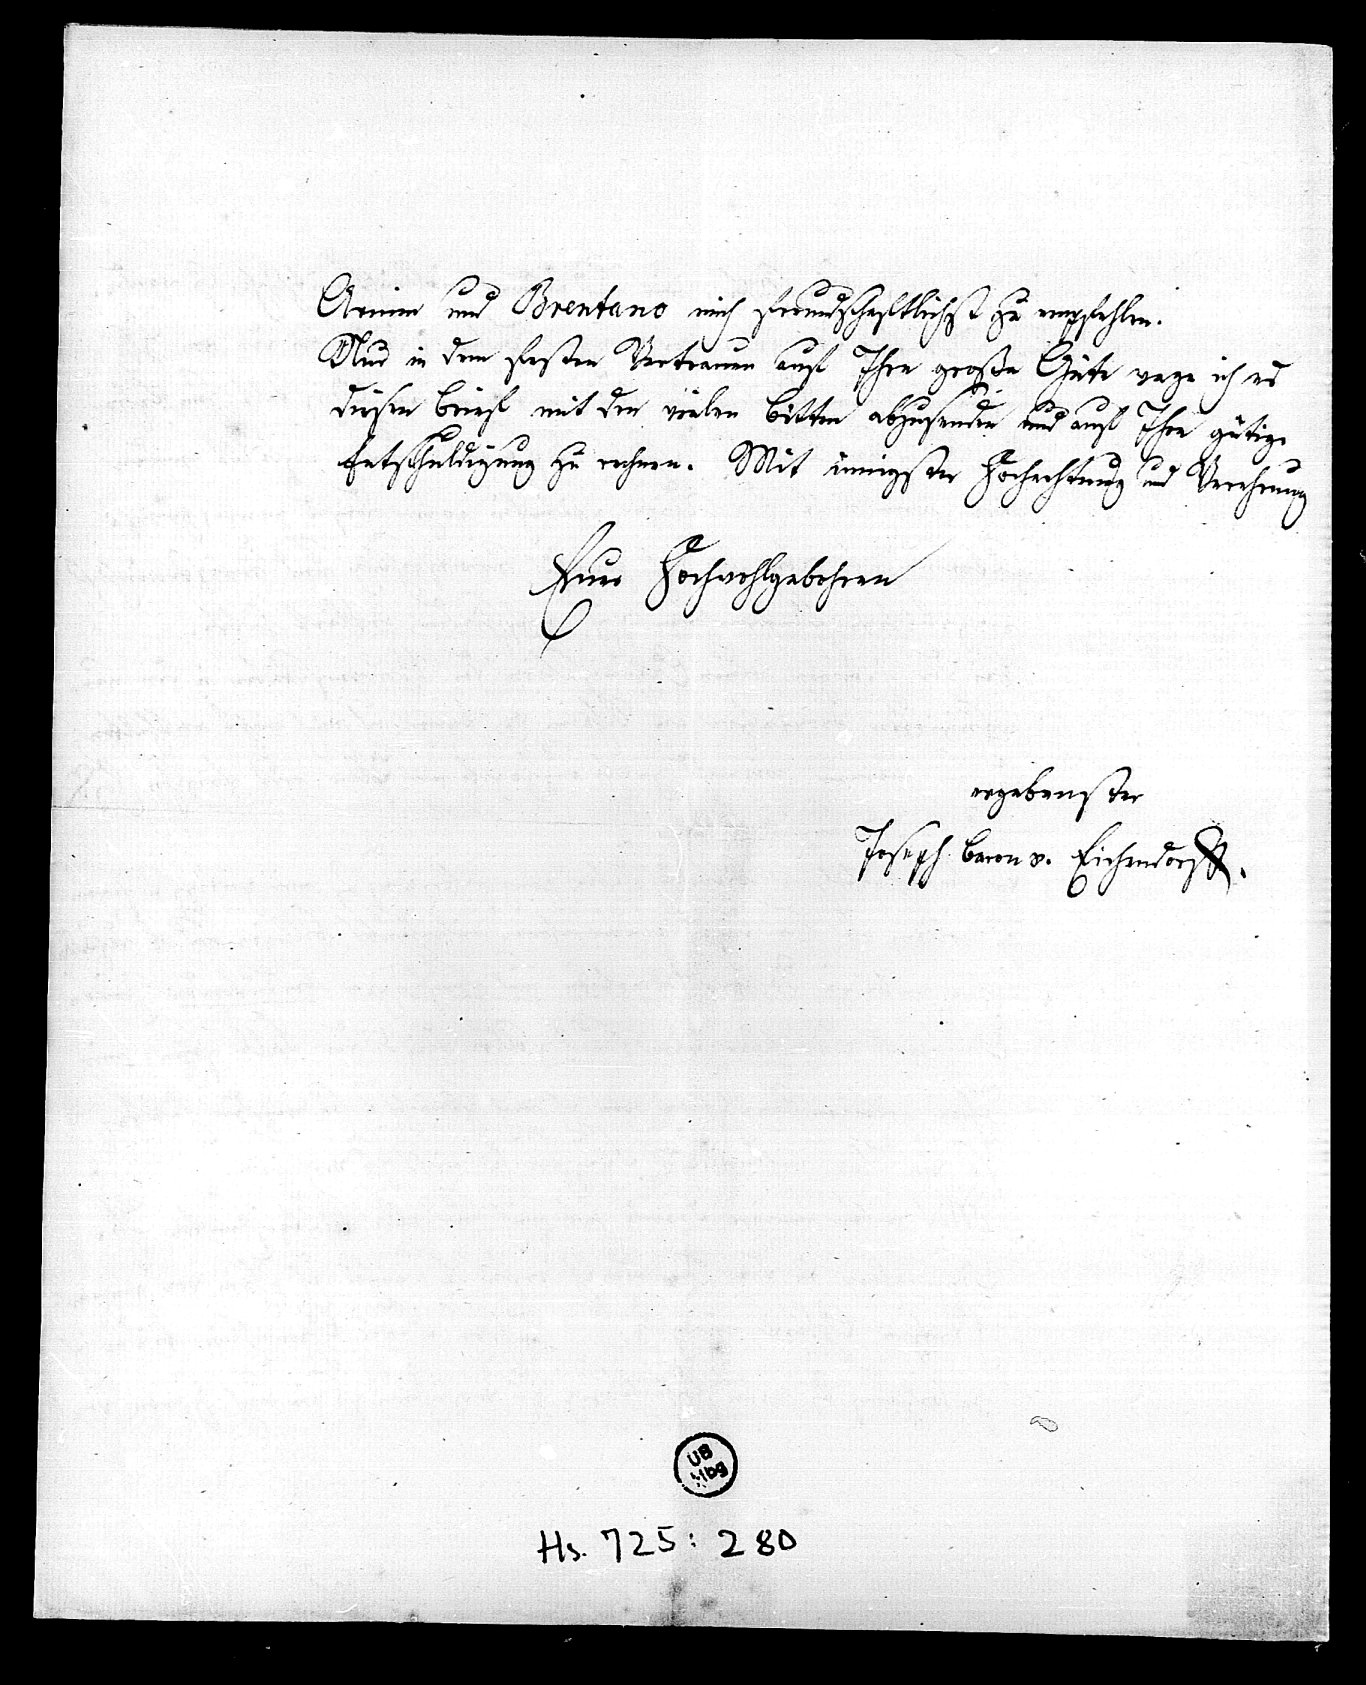 Arnim und Brentano mich freundschaftlichst zu empfehlen.
Nur in dem festen Vertrauen auf Ihre große Güte wage ich es
diesen Brief mit den vielen Bitten abzusenden und auf Ihre gütige
Entschuldigung zu rechnen. Mit innigster Hochachtung und Verehrung
Euer Hochwohlgebohren
ergebenster
Joseph Baron v. Eichendorff.
UB
Mbg
Hs. 725: 280